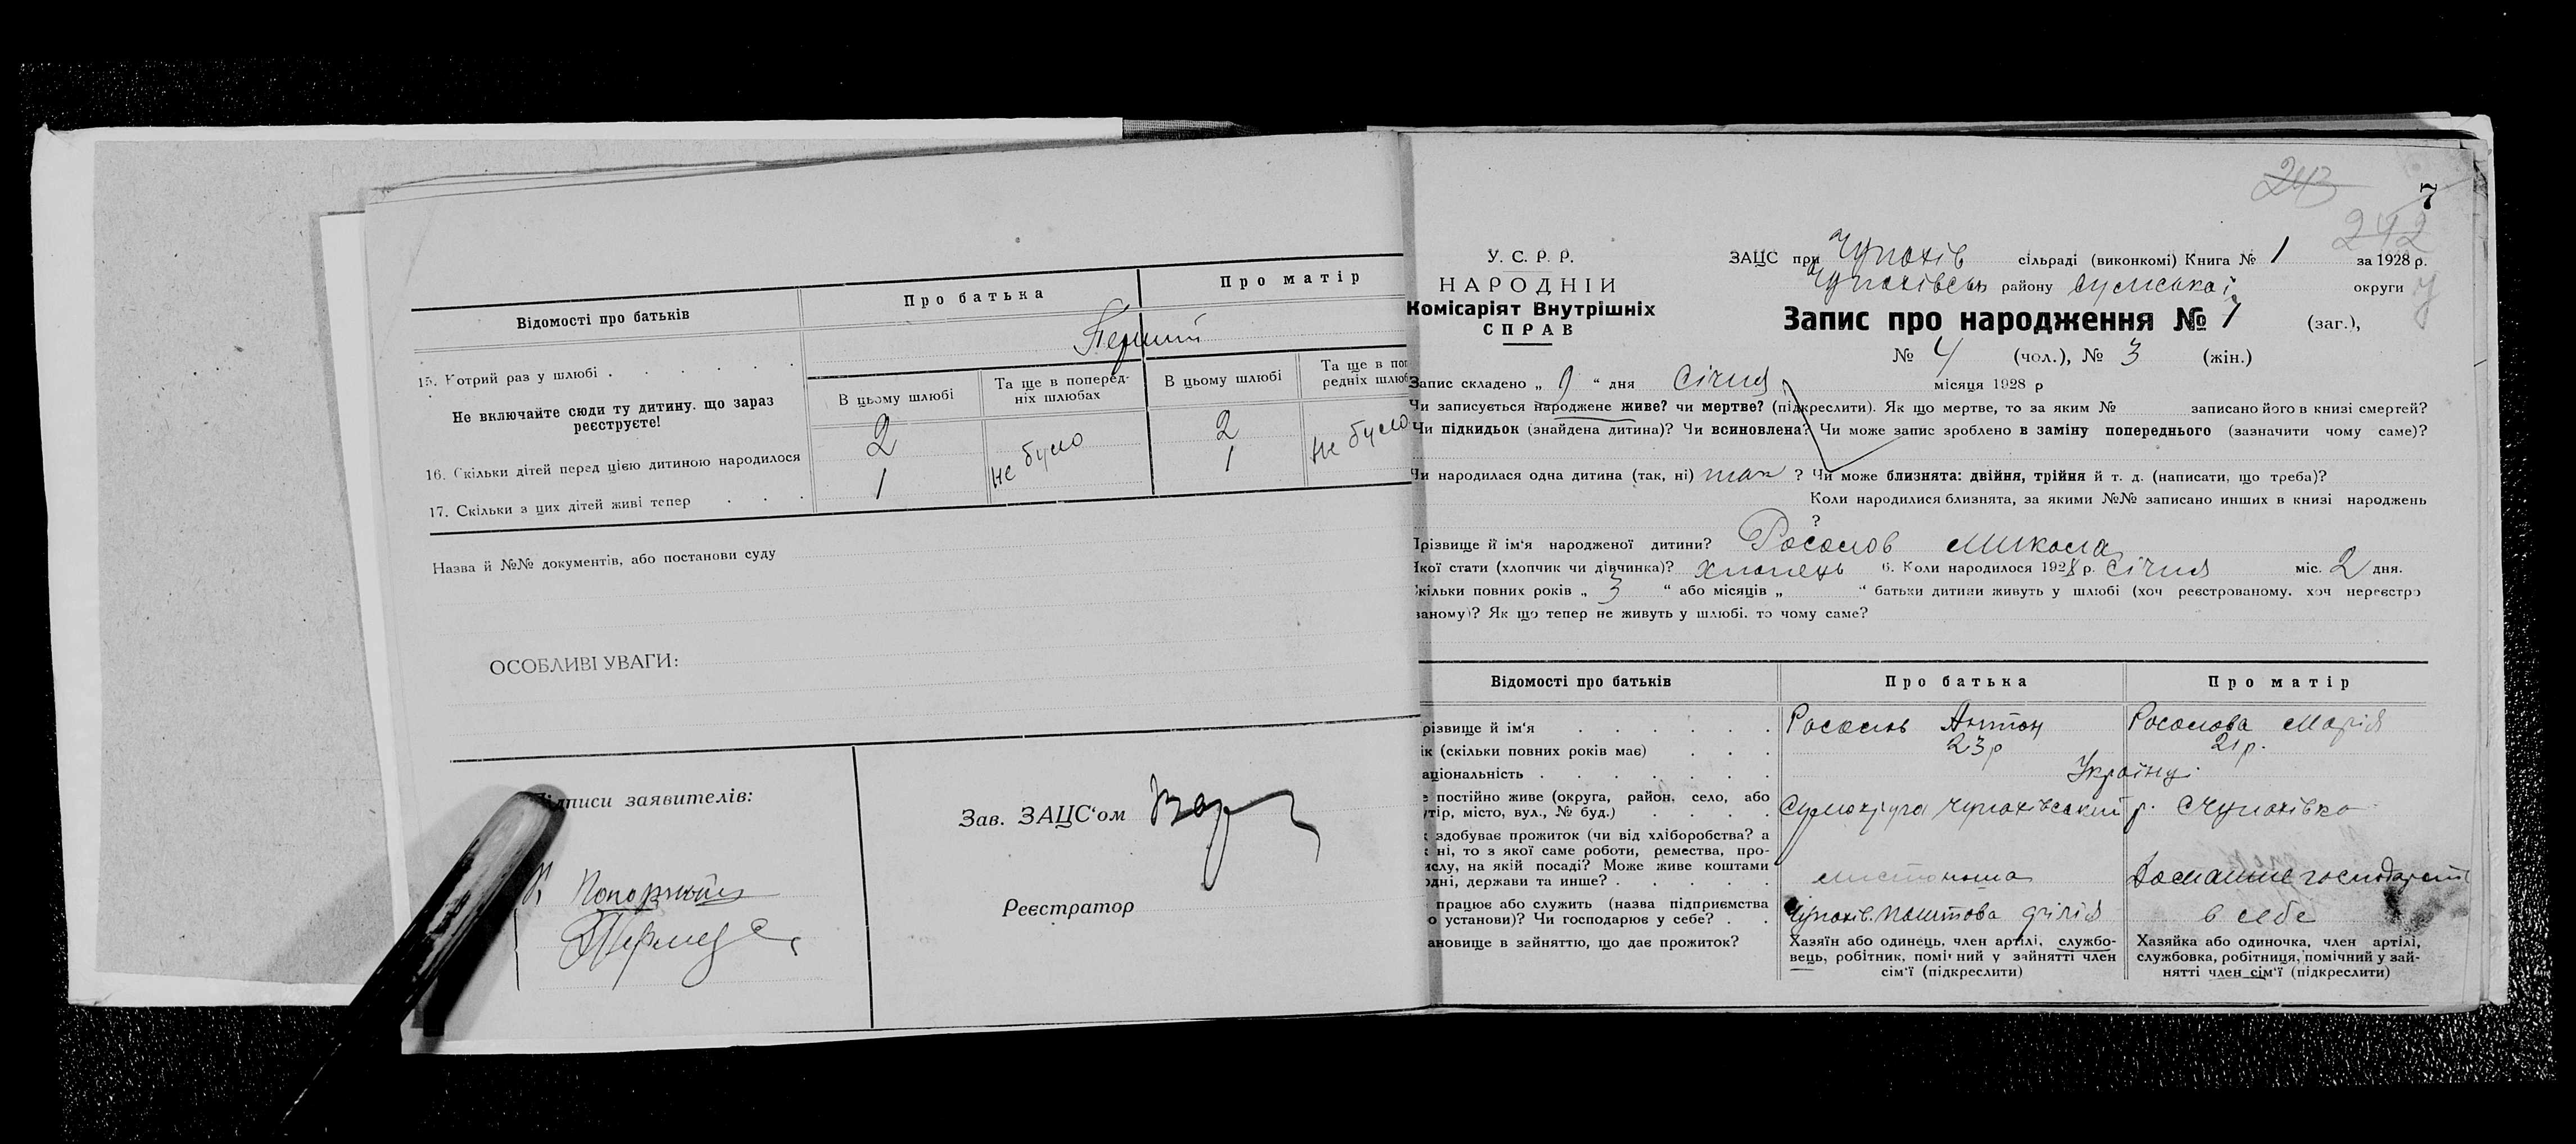 Відомості про батьків
Про батька
Про матір
15. Котрий раз у шлюбі
Перший
Не включайте сюди ту дитину. що зараз
реєструєте!
В цьому шлюбі
Та ще в поперед-
ніх шлюбах
В цьому шлюбі
Та ще в поп
редніх шлюб
16. Скільки дітей перед цією дитиною народилося
2
не було
2
не було
17. Скільки з цих дітей живі тепер
1
1
Назва й №№ документів, або постанови суду
ОСОБЛИВІ УВАГИ:
писи заявителів:
Зав. ЗАЦС'ом
Реєстратор
243
7
242
У. С. Р. Р.
НАРОДНІЙ
Комісаріят Внутрішніх
СПРАВ
ЗАЦС при Чупахів сільраді (виконкомі) Книга № 1 за 1928 р.
Чупахівськ району Сумської округи
Запис про народження № 7 (заг.),
№ 4 (чол.), № 3 (жін.)
Запис складено „ 9 “ дня Січня місяця 1928 р
Чи записується народжене живе? чи мертве? (підкреслити). Як що мертве, то за яким № записано його в книзі смертей?
Чи підкидьок (знайдена дитина)? Чи всиновлена? Чи може запис зроблено в заміну попереднього (зазначити чому саме)?
Чи народилася одна дитина (так, ні) так ? Чи може близнята: двійня, трійня й т. д. (написати, що треба)?
Коли народилися близнята, за якими №№ записано инших в книзі народжень
?
Прізвище й ім'я народженої дитини? Росолов Микола
Якої стати (хлопчик чи дівчинка)? хлопець 6. Коли народилося 1928 р. Січня міс. 2 дня.
кільки повних років „ 3 “ або місяців „ “ батьки дитини живуть у шлюбі (хоч реєстрованому. хоч нереєстро
ваному)? Як що тепер не живуть у шлюбі. то чому саме?
Відомості про батьків
Про батька
Про матір
різвище й ім'я
Росолов Антон
Росолова Марія
ік (скільки повних років має)
23 р
21 р.
аціональність
Українці
е постійно живе (округа, район. село, або
утір, місто, вул., № буд.)
Сумокруга Чупахівський р. с Чупахівка
здобуває прожиток (чи від хліборобства? а
ні, то з якої саме роботи, ремества, про-
ислу, на якій посаді? Може живе коштами
одні, держави та инше?
листоноша
Домашнє господарств
працює або служить (назва підприємства
о установи)? Чи господарює у себе?
Чупахів. поштова філія
в себе
ановище в зайняттю, що дає прожиток?
Хазяїн або одинець, член артілі, службо-
вець, робітник, помічний у зайнятті член
сім'ї (підкреслити)
Хазяйка або одиночка, член артілі,
службовка, робітниця, помічний у зай-
нятті член сім'ї (підкреслити)